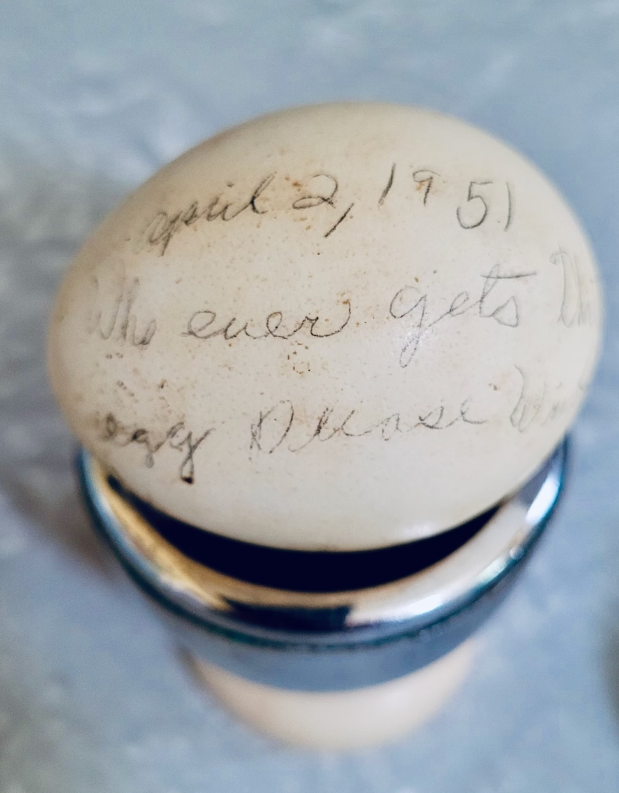 april 2, 1951
Who ever gets
egg Please